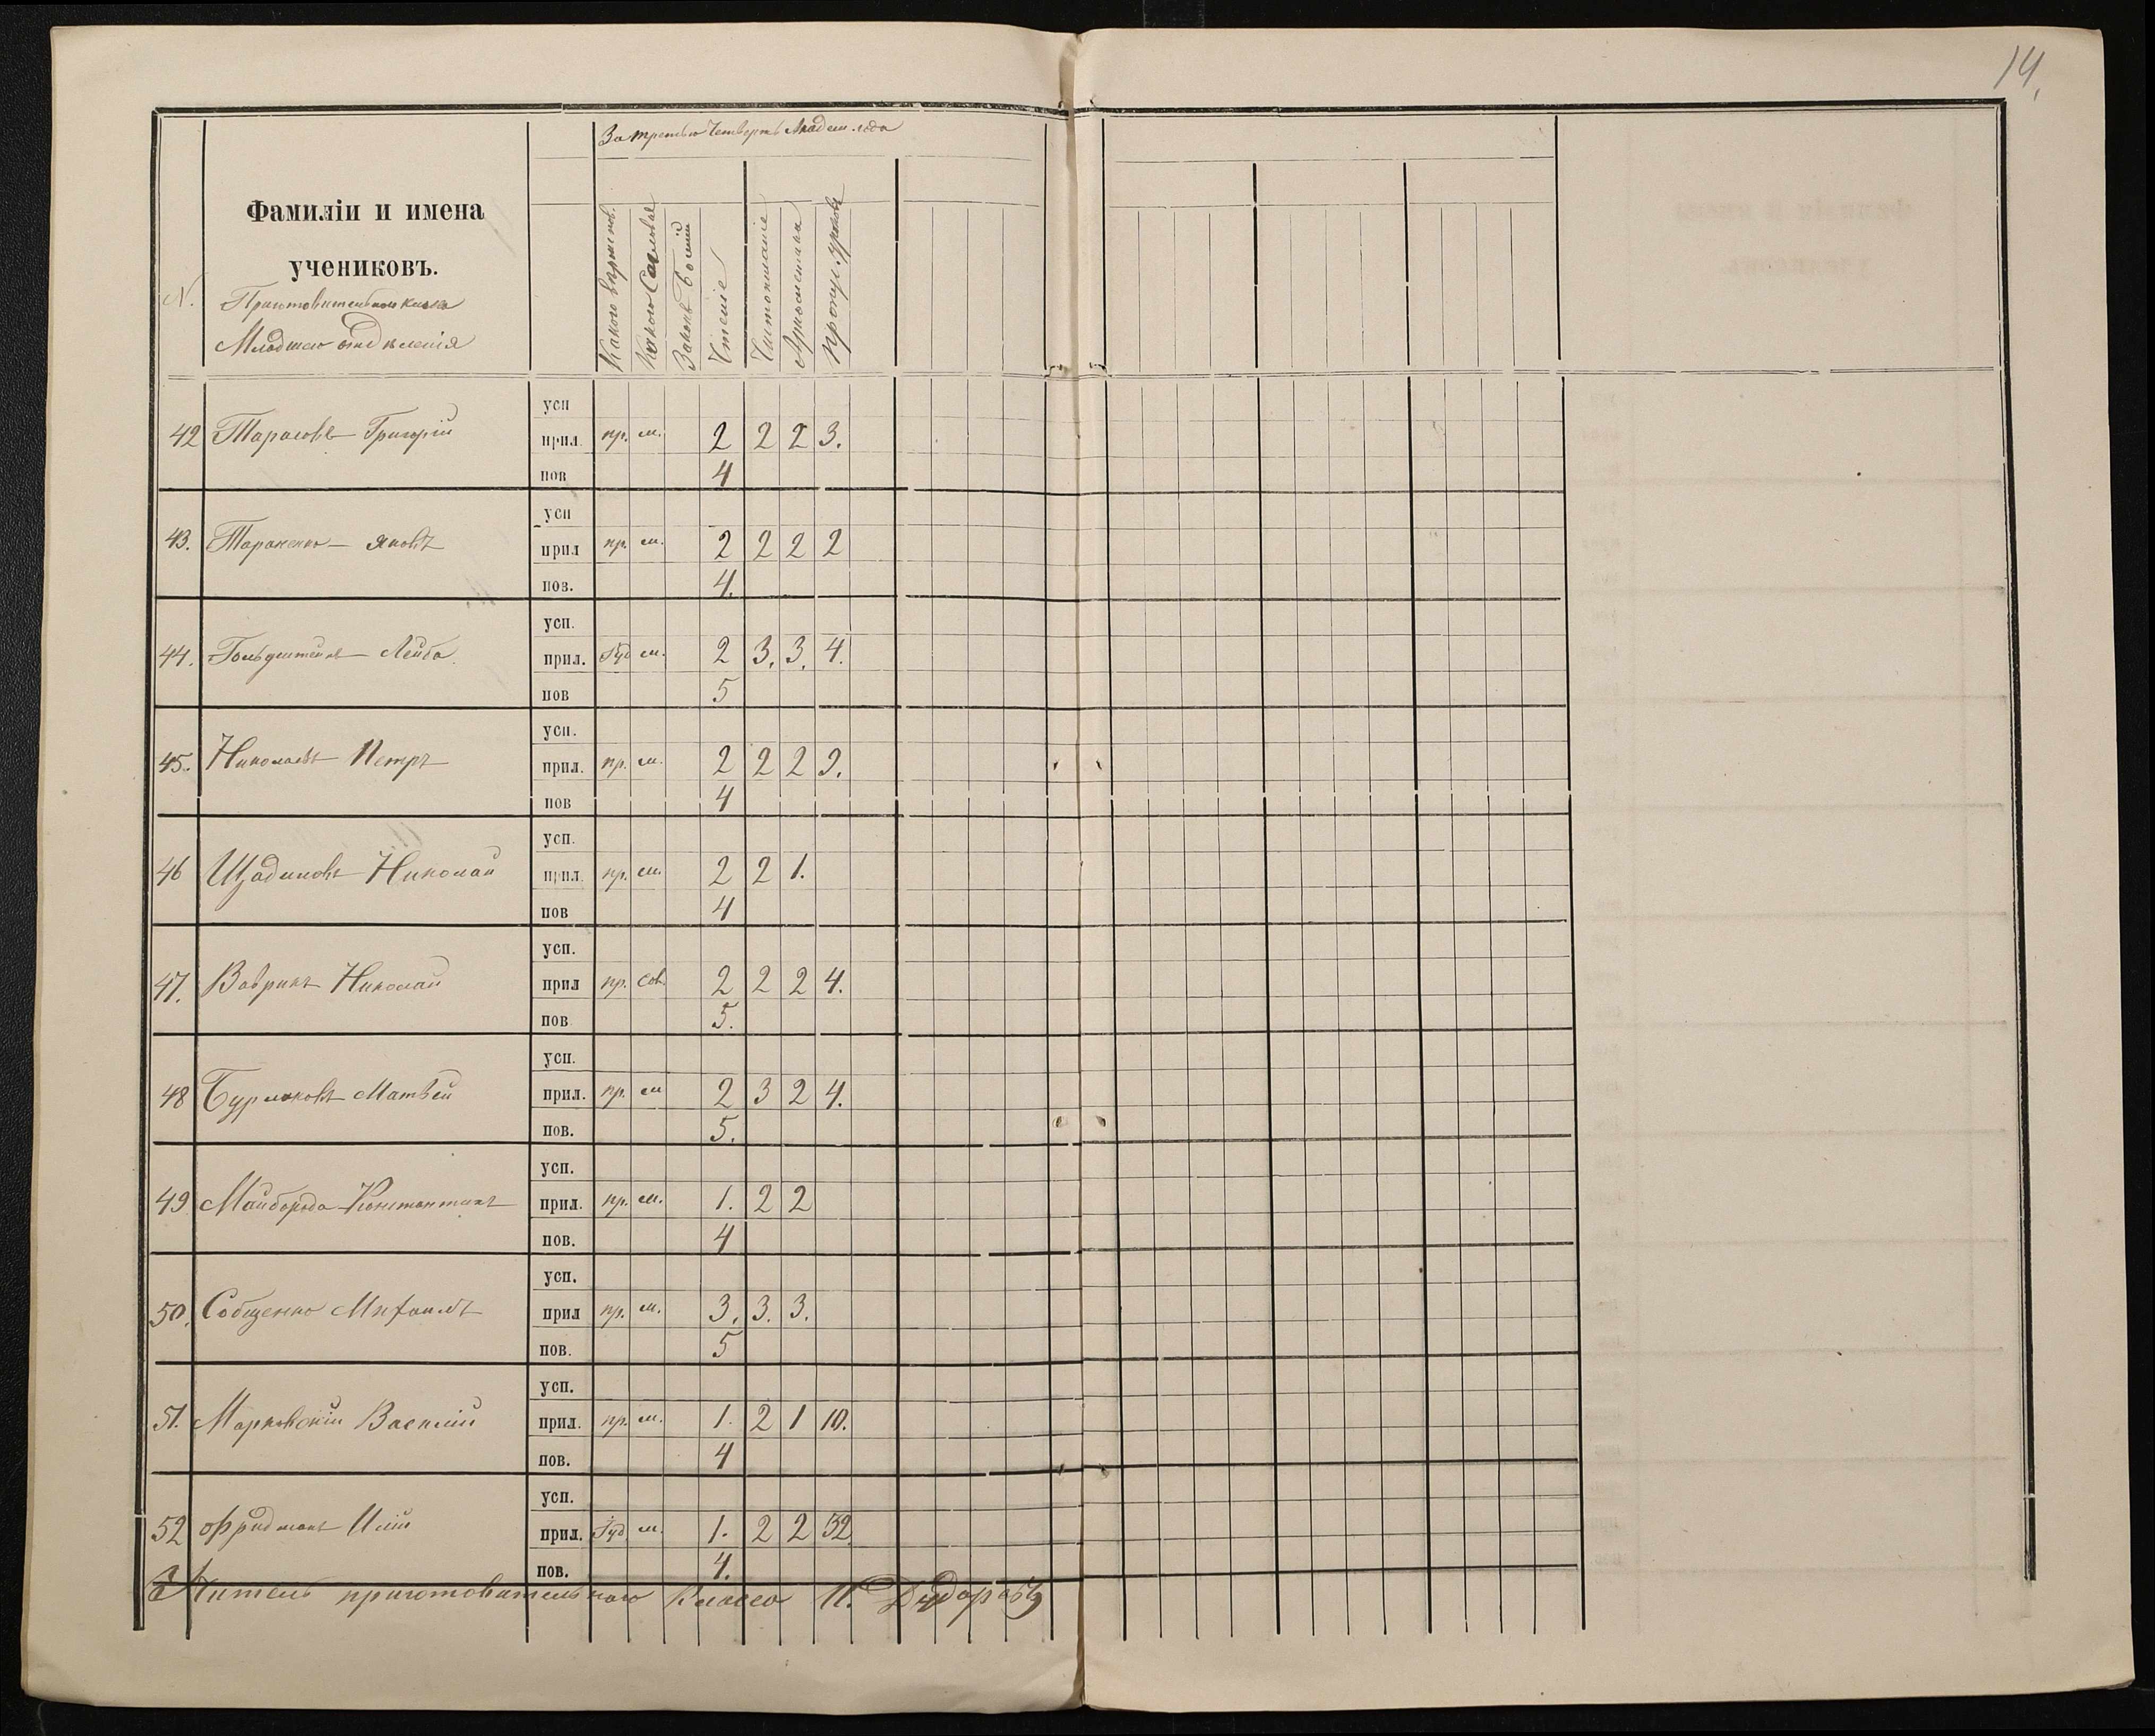 14.
За третью Четверть Академ. года
Фамиліи и имена
учениковъ.
N.
Приготовительного класса
Младшего отделенія
Какого вероисп.
Какого Сословія
Законъ Божій
Чтеніе
Чистописаніе
Арифметика
Пропущ. уроковъ
усп
42 Тарасовъ Григорій прил. пр. м. 2 2 2 3.
пов 4
усп
43. Тараненко Яковъ прил пр. м. 2 2 2 2
пов. 4.
усп.
44. Гольдштейнъ Лейба прил. Іуд м. 2 3. 3. 4.
пов 5
усп.
45. Николаевъ Петръ прил. пр. м. 2 2 2 9.
пов 4
усп.
46 Щадиловъ Николай прил. пр. м. 2 2 1.
пов 4
усп.
47. Ваврикъ Николай прил пр. Сов. 2 2 2 4.
пов 5.
усп.
48 Бурлаковъ Матвей прил. пр. м 2 3 2 4.
пов. 5.
усп.
49 Майборода Константинъ прил. пр. м. 1. 2 2
пов. 4
усп.
50. Собценко Михаилъ прил пр. м. 3. 3. 3.
пов. 5
усп.
51. Марковскій Василій прил. пр. м. 1. 2 1 10.
пов. 4
усп.
52 Фридманъ Илій прил. Іуд м. 1. 2 2 32.
пов. 4.
Учитель приготовительного класса И. Дудоровъ